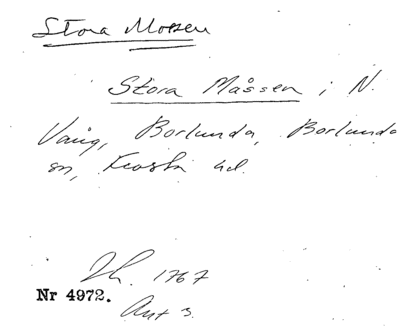 Stora Mossen
Stora Måssen i N.
Vång, Borlunda, Borlunda
sn, Frosta hd.
Th. 1767
Nr 4972.
Akt 3.